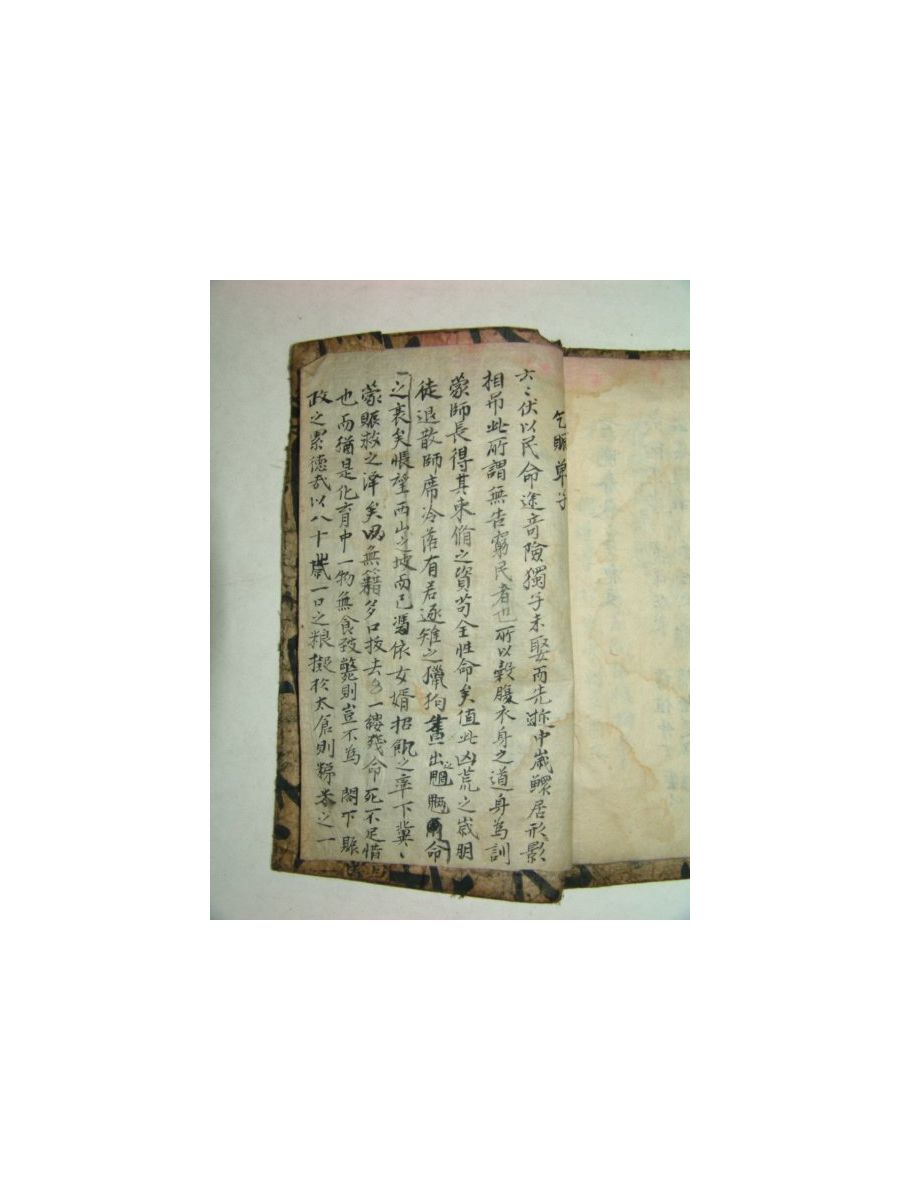 乞賑單子
云〻伏以民命途奇險獨子未娶而先逝中歲鰥居形影
相吊此所謂無告窮民者也所以穀腹衣身之道身為訓
蒙師長得其束脩之資苟全性命矣值此凶荒之歲朋
徒退散師席冷落有若逐雉之獵狗畫出之命
之哀矣悵望西山坡而已馮依女婿招飢之率下冀〻
蒙賑救之澤矣無籍多口拔去一縷殘命死不足惜
也而猶是化育中一物無食致斃則豈不為 閣下賑
政之累德哉以八十歲一口之粮擬於太倉則稊米之一